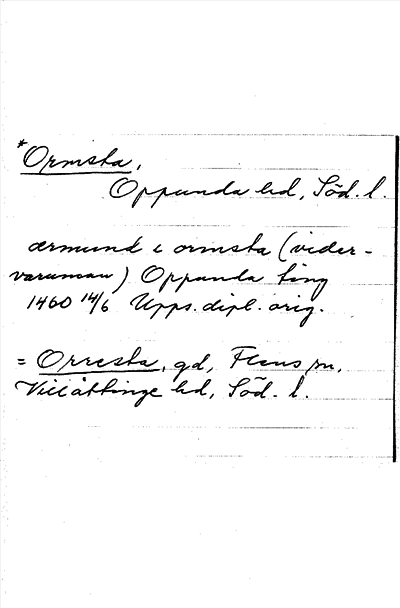 *Ormsta,
Oppunda hd, Söd. l.
ærmund i ormsta (vider-
varuman) Oppunda ting
1460 14/6 Upps. dipl. orig.
= Orresta, gd, Flens sn,
Villåttinge hd, Söd. l.